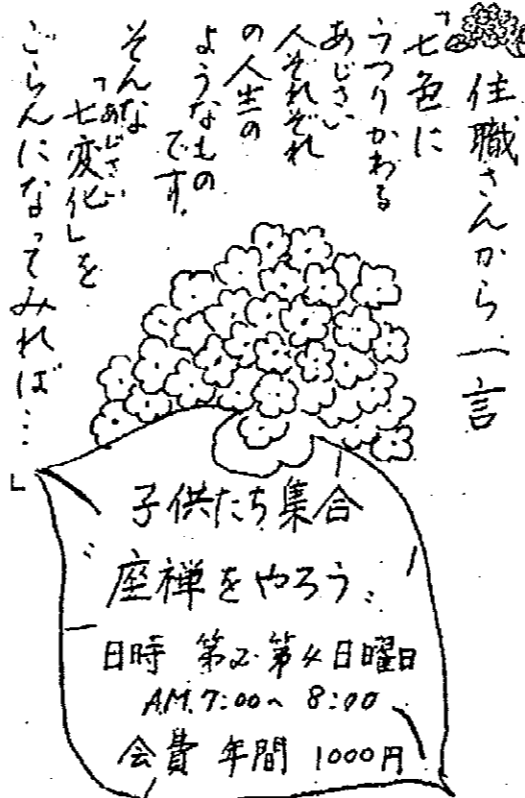 住職さんから一言
「七色に
うつりかわる
あじさい
人それぞれ
の人生の
ようなもの
です。
そんな
「あじさい
七変化」を
ごらんになってみれば…」
子供たち集合
座禅をやろう
日時 第2・第4日曜日
A.M.7:00〜8:00
会費 年間 1000円